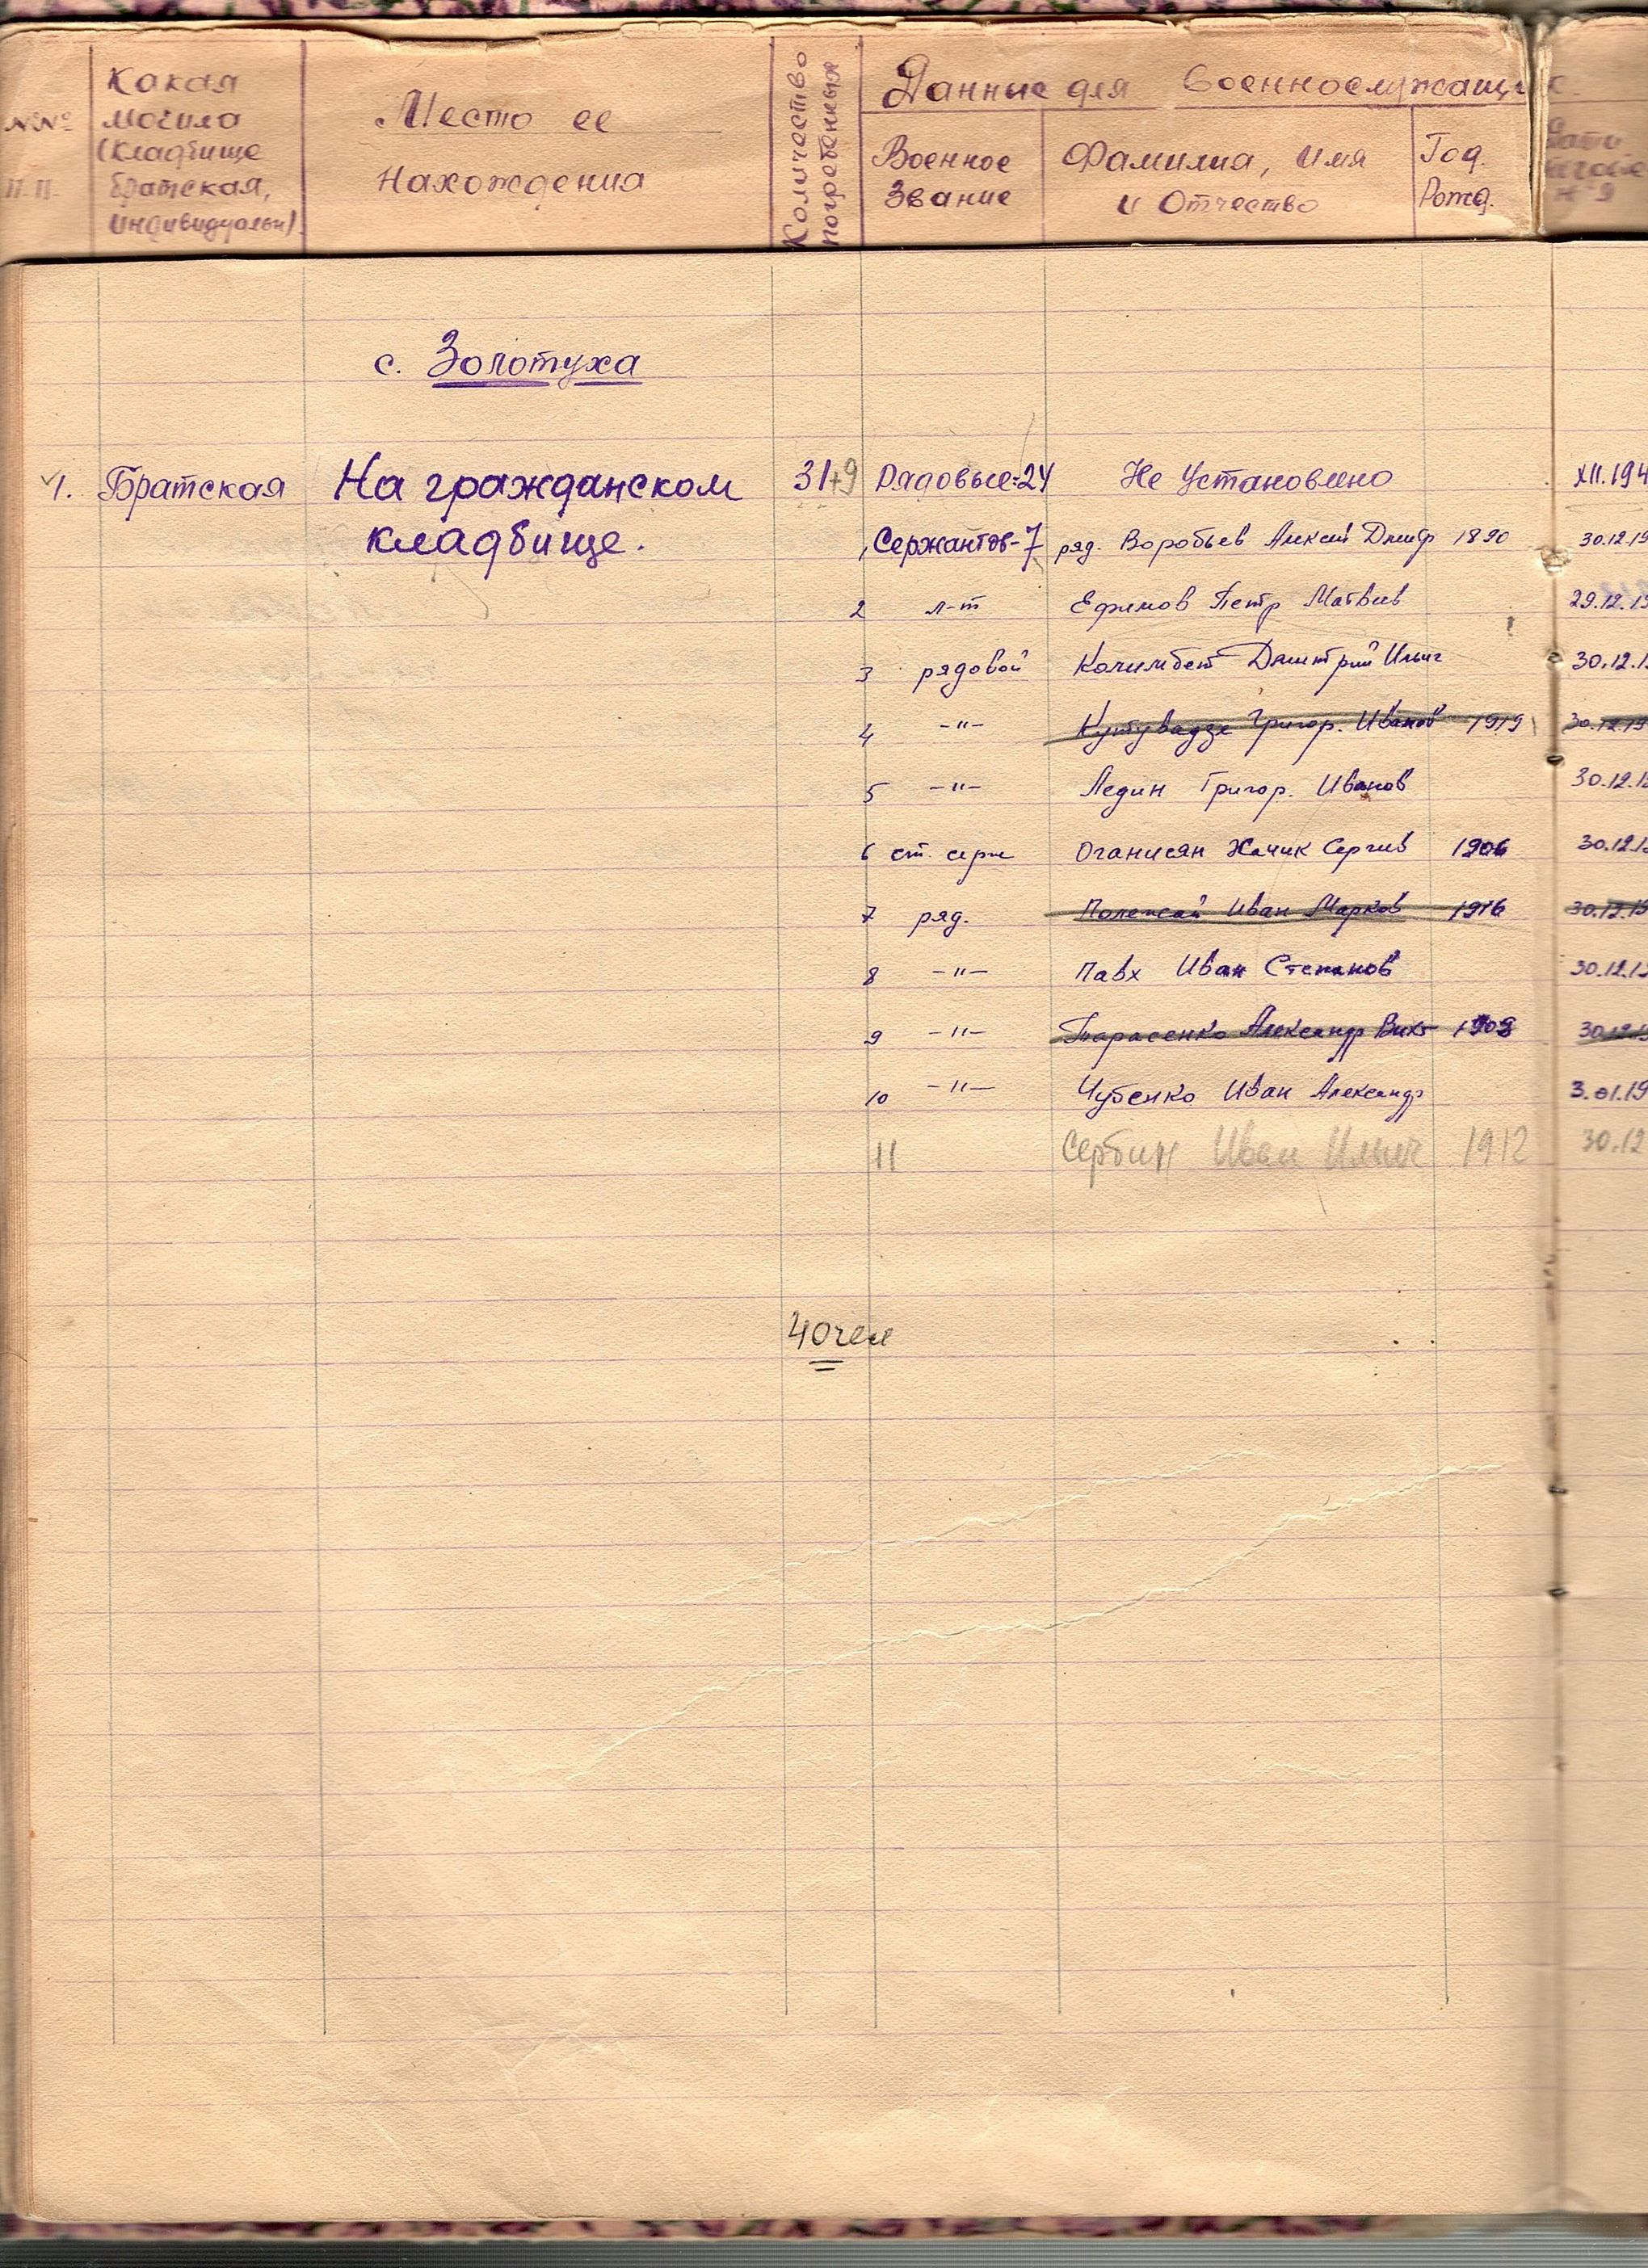 №№ п.п.
Какая могила (кладбище братская, индивидуальн)
Место ее нахождения
Количество погребенных
Данные для военнослужащих.
Военное Звание
Фамилиа, имя и Отчество
Год. Рожд.
с. Золотуха
1. Братская На гражданском 31+9 Рядовые=24 Не Установлено XII.194
кладбище. Сержантов-7 ряд. Воробьев Алексей Дмитр 1890 30.12.19
2 л-т Ефимов Петр Матвеев 29.12.19
3 рядовой Колимбет Дмитрий Ильич 30.12.1
4 -"- Кутувадзе Григор. Иванов 1919 30.12.19
5 -"- Ледин Григор. Иванов 30.12.19
6 ст. серж Оганисян Хачик Сергеев 1906 30.12.1
7 ряд. Полежай Иван Марков 1916 30.12.19
8 -"- Павх Иван Степанов 30.12.19
9 -"- Тарасенко Александр Викт 1908 30.12.19
10 -"- Чубенко Иван Александр 3.01.19
11 Сербин Иван Ильич 1912 30.12
40 чел